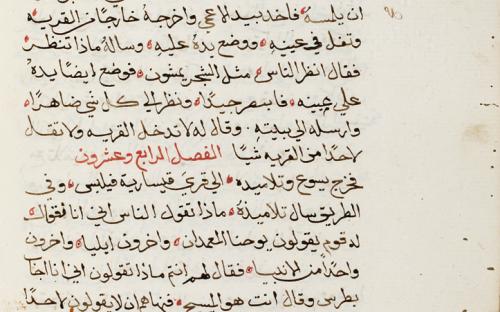 ان يلمسه فاخد بيد الاعمي واخرجه خارجًا من القريه
وتفل في عينيه ووضع يده عليه وساله ماذا تنظر
فقال انظر الناس مثل الشجر يمشون فوضع ايضًا يده
علي عينيه فابصر جيدًا ونظر الي كل شي ضاهرًا
وارسله الي بيته وقال له لا تدخل القريه ولا تقل
لاحدًا من القريه شيًا الفصل الرابع وعشرون
فخرج يسوع وتلاميذه الي قري قيساريه فيلبس وفي
الطريق سال تلاميذه ماذا تقول الناس اني انا فقالوا
له قوم يقولون يوحنا المعمدان واخرون ايليا واخرون
واحدًا من الانبيا فقال لهم انتم ماذا تقولون اني انا اجاب
بطرس وقال انت هو المسيح فنهاهم ان لا يقولون لاحدًا